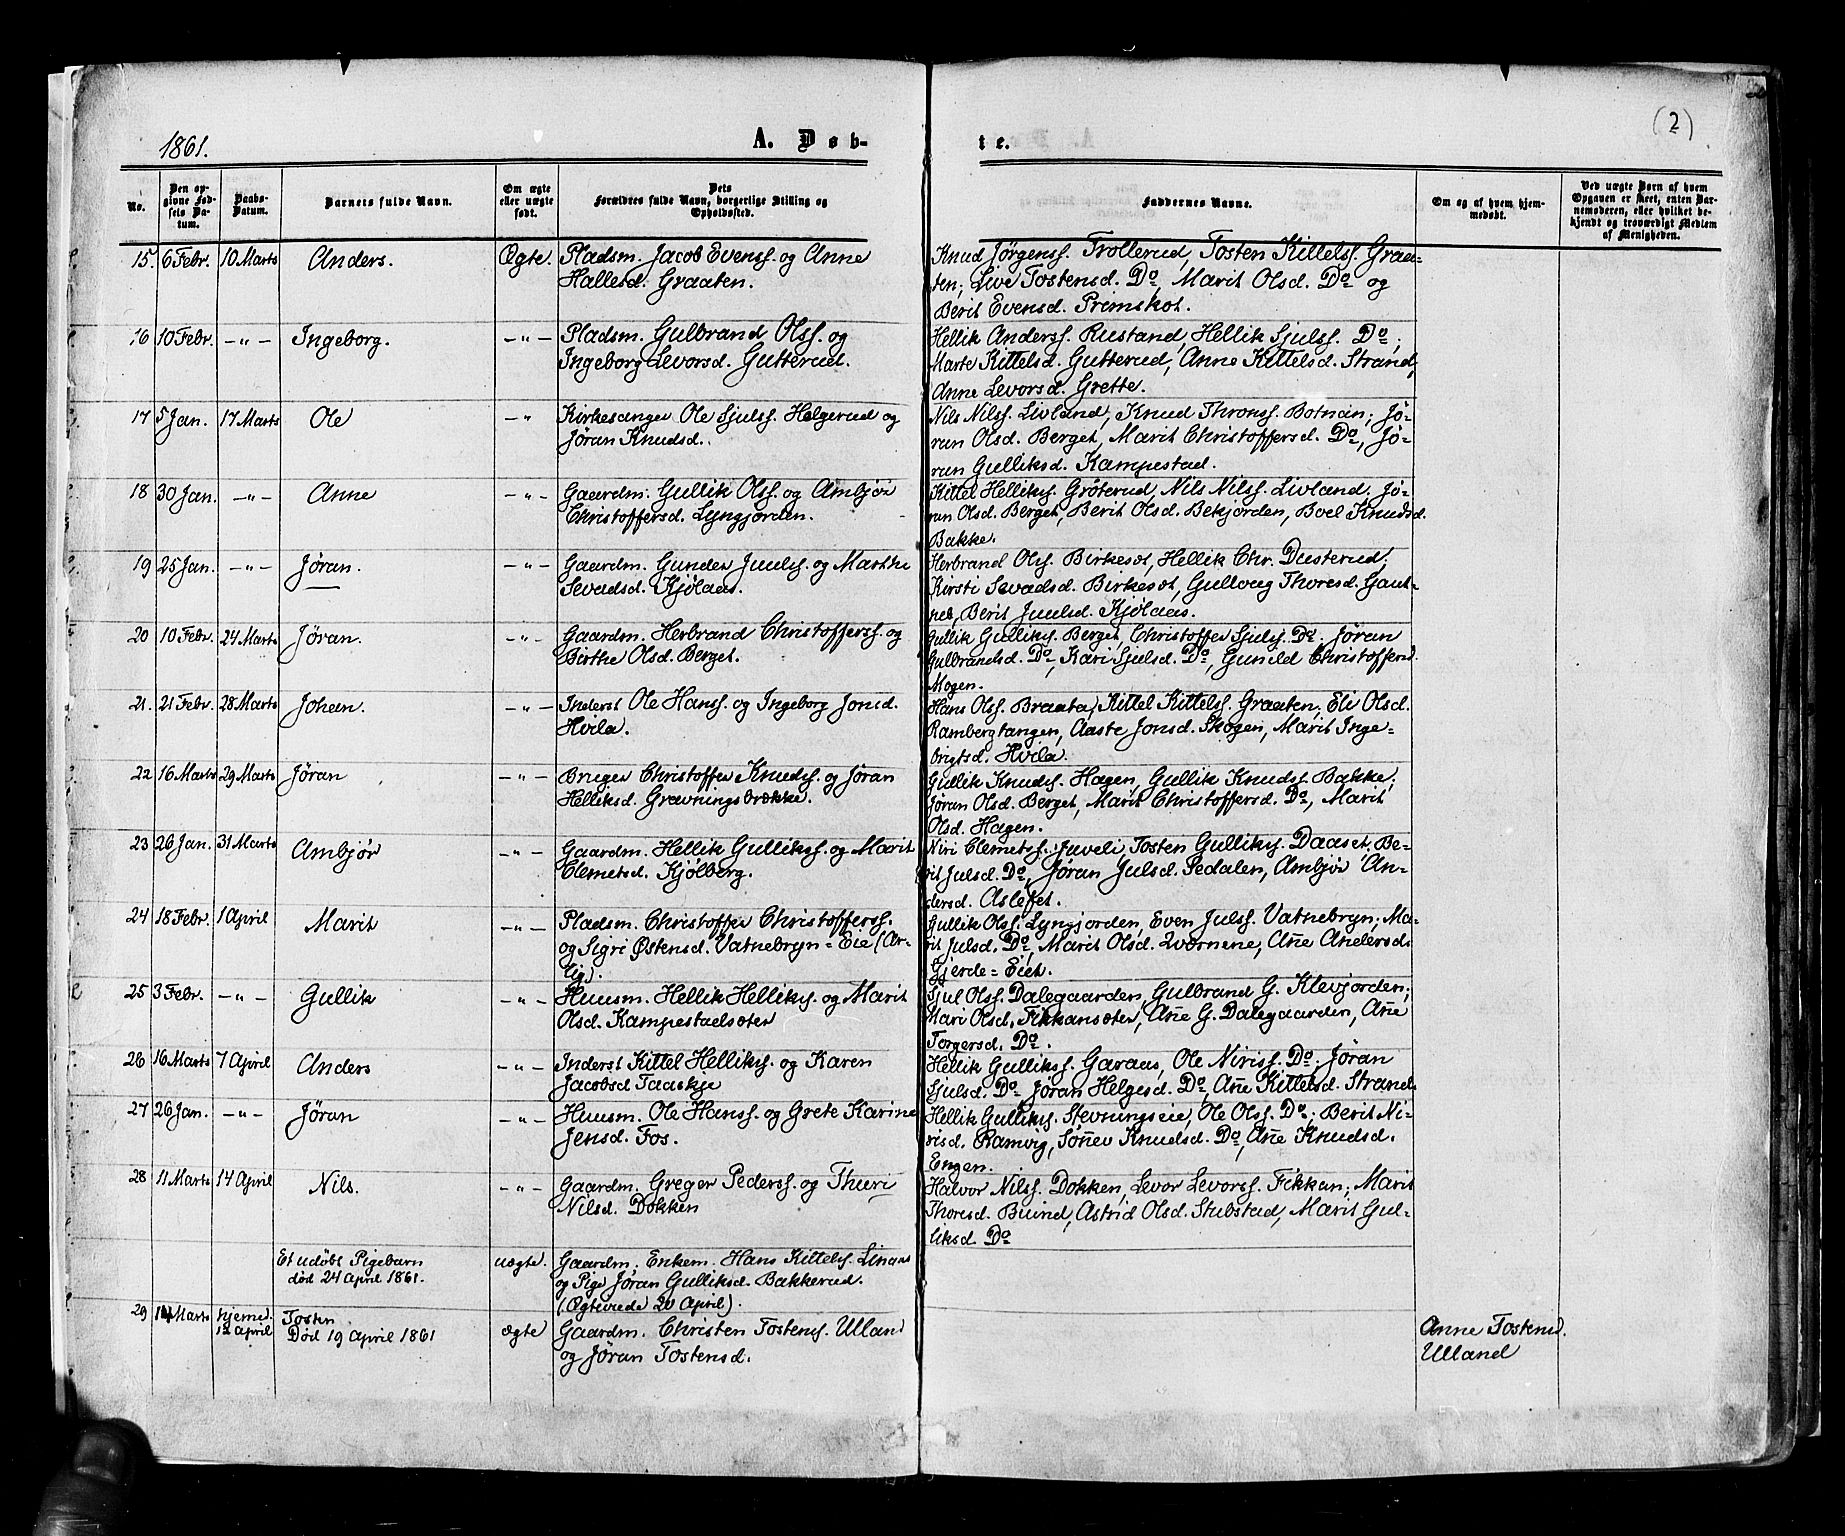 1861.
A. Døb-
te.
(2)
No.
Den op-
givne Fød-
sels Da-
tum.
Daabs-
Datum.
Barnets fulde Navn.
Om ægte
eller uægte
født.
Dets
Forældres fulde Navn, borgerlige Stilling og
Opholdssted.
Faddernes Navne.
Om og af hvem hjem-
medøbt.
Ved uægte Børn af hvem
Opgaven er skeet, enten Bar-
nemoderen, eller hvilket be-
kjendt og troværdigt Medlem
af Menigheden.
15. 6 Febr. 10 Marts Anders. Ægte. Pladsm. Jacob Evenss. og Anne
Hallesd. Graaten.
Knud Jørgenss. Trollerud, Tosten Kittelss. Graa-
ten; Live Tostensd. Do, Marit Olsd. Do og
Berit Evensd. Primskot.
16 10 Febr. -"- Ingeborg. -"- Pladsm. Gulbrand Olss. og
Ingeborg Levorsd. Gutterud.
Hellik Anderss. Rustand, Hellik Sjulss. Do;
Marte Kittelsd. Gutterud, Anne Kittelsd. Strand,
Anne Levorsd. Grette.
17 5 Jan. 17 Marts Ole -" Kirkesanger Ole Sjulss. Helgerud og
Jøran Knudsd.
Nils Nilss. Livland, Knud Thronss. Botnan; Jø-
ran Olsd. Berget, Marit Christoffersd. Do, Jø-
ran Gulliksd. Kampestad.
18 30 Jan. -"- Anne -"- Gaardm. Gullik Olss. og Ambjør
Christoffersd. Lyngjorden.
Kittel Helliks. Grøterud, Nils Nilss. Livland; Jø-
ran Olsd. Berget, Berit Olsd. Bekjorden, Boel Knudsd.
Bakke.
19 25 Jan. -"- Jøran. -"- Gaardm. Gunder Juuls. og Marthe
Sevadsd. Kjølaas.
Herbrand Olss. Birkesøt, Hellik Chr. Dusterud;
Kirsti Sevadsd. Birkesøt, Gullaug Thoresd. Gaut-
ned, Berit Juulsd. Kjølaas.
20 10 Febr. 24 Marts Jøran. -"- Gaardm. Herbrand Christofferss. og
Birthe Olsd. Berget.
Gullik Gulliks. Berget, Christoffer Sjuls. Do; Jøran
Gulbrandsd. Do, Kari Sjulsd. Do, Gunild Christoffersd.
Mogen.
21. 21 Febr. 28 Marts Johan. -"- Inderst Ole Hanss. og Ingeborg Jonsd.
Hvila.
Hans Olss. Braata, Kittel Kittelss. Graaten; Eli Olsd.
Rambergtangen, Aaste Jonsd. Skogen, Marit Inge-
brigtsd. Hvila.
22 16 Marts 29 Marts Jøran -"- Bruger Christoffer Knuds. og Jøran
Helliksd. Gravningsbrække.
Gullik Knudss. Hagen, Gullik Knudss. Bakke;
Jøran Olsd. Berget, Marit Christoffersd. Do, Marit
Olsd. Hagen.
23 26 Jan. 31 Marts Ambjør -"- Gaardm. Hellik Gulliks. og Marit
Clemetsd. Kjølberg.
Niri Clemetss. Juveli, Tosten Gulliks. Daaset; Be-
rit Julsd. Do, Jøran Julsd. Pedalen, Ambjør An-
dersd. Aslefet.
24 18 Febr. 1 April Marit -"- Pladsm. Christoffer Christofferss.
og Sigri Østensd. Vatnebryn-Eie (Ar-
lig).
Gullik Olss. Lyngjorden, Even Julss. Vatnebryn; Ma-
rit Julsd. Do, Marit Olsd. Tværnene, Ane Andersd.
Gjerde-Eiet.
25 3 Febr. -"- Gullik -"- Huusm. Hellik Helliks. og Marit
Olsd. Kampestadsæter
Sjul Olss. Dalegaarden, Gulbrand G. Klevjorden;
Mari Olsd. Fikkansæter, Ane G. Dalegaarden, Ane
Torgersd. Do.
26 16 Marts 7 April Anders -"- Inderst Kittel Helliks. og Karen
Jacobsd Taaskje
Hellik Gullikss. Garaas, Ole Niriss. Do; Jøran
Sjulsd. Do, Jøran Helgesd. Do, Ane Kittelsd. Strand.
27 26 Jan. -"- Jøran -"- Huusm. Ole Hanss. og Grete Karine
Jensd. Fos.
Hellik Gulliks. Stevningseie, Ole Olss. Do; Berit Ni-
risd. Ramvig, Sønev Knudsd. Do, Ane Knudsd.
Engen.
28 11 Marts 14 April Nils. -"- Gaardm. Greger Pederss. og Thuri
Nilsd. Dokken
Halvor Nilss. Dokken, Levor Levorss. Fikkan; Marit
Thoresd. Buind, Astrid Olsd. Stubstad, Marit Gul-
liksd. Do
Et udøbt Pigebarn
død 24 April 1861.
uægte. Gaardm. Enkem. Hans Kittels. Linaas
og Pige Jøran Gulliksd. Bakkerud.
(Ægteviede 20 April).
29 14 Marts hjemd.
12 April
Tosten
Død 19 April 1861
ægte Gaardm. Christen Tostens. Ulland
og Jøran Tostensd.
Anne Tostensd.
Ulland